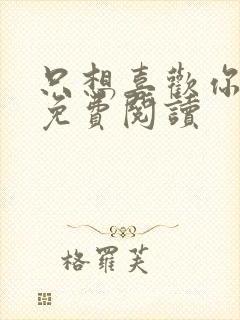 只想喜歡你
免費閱讀
格羅芙